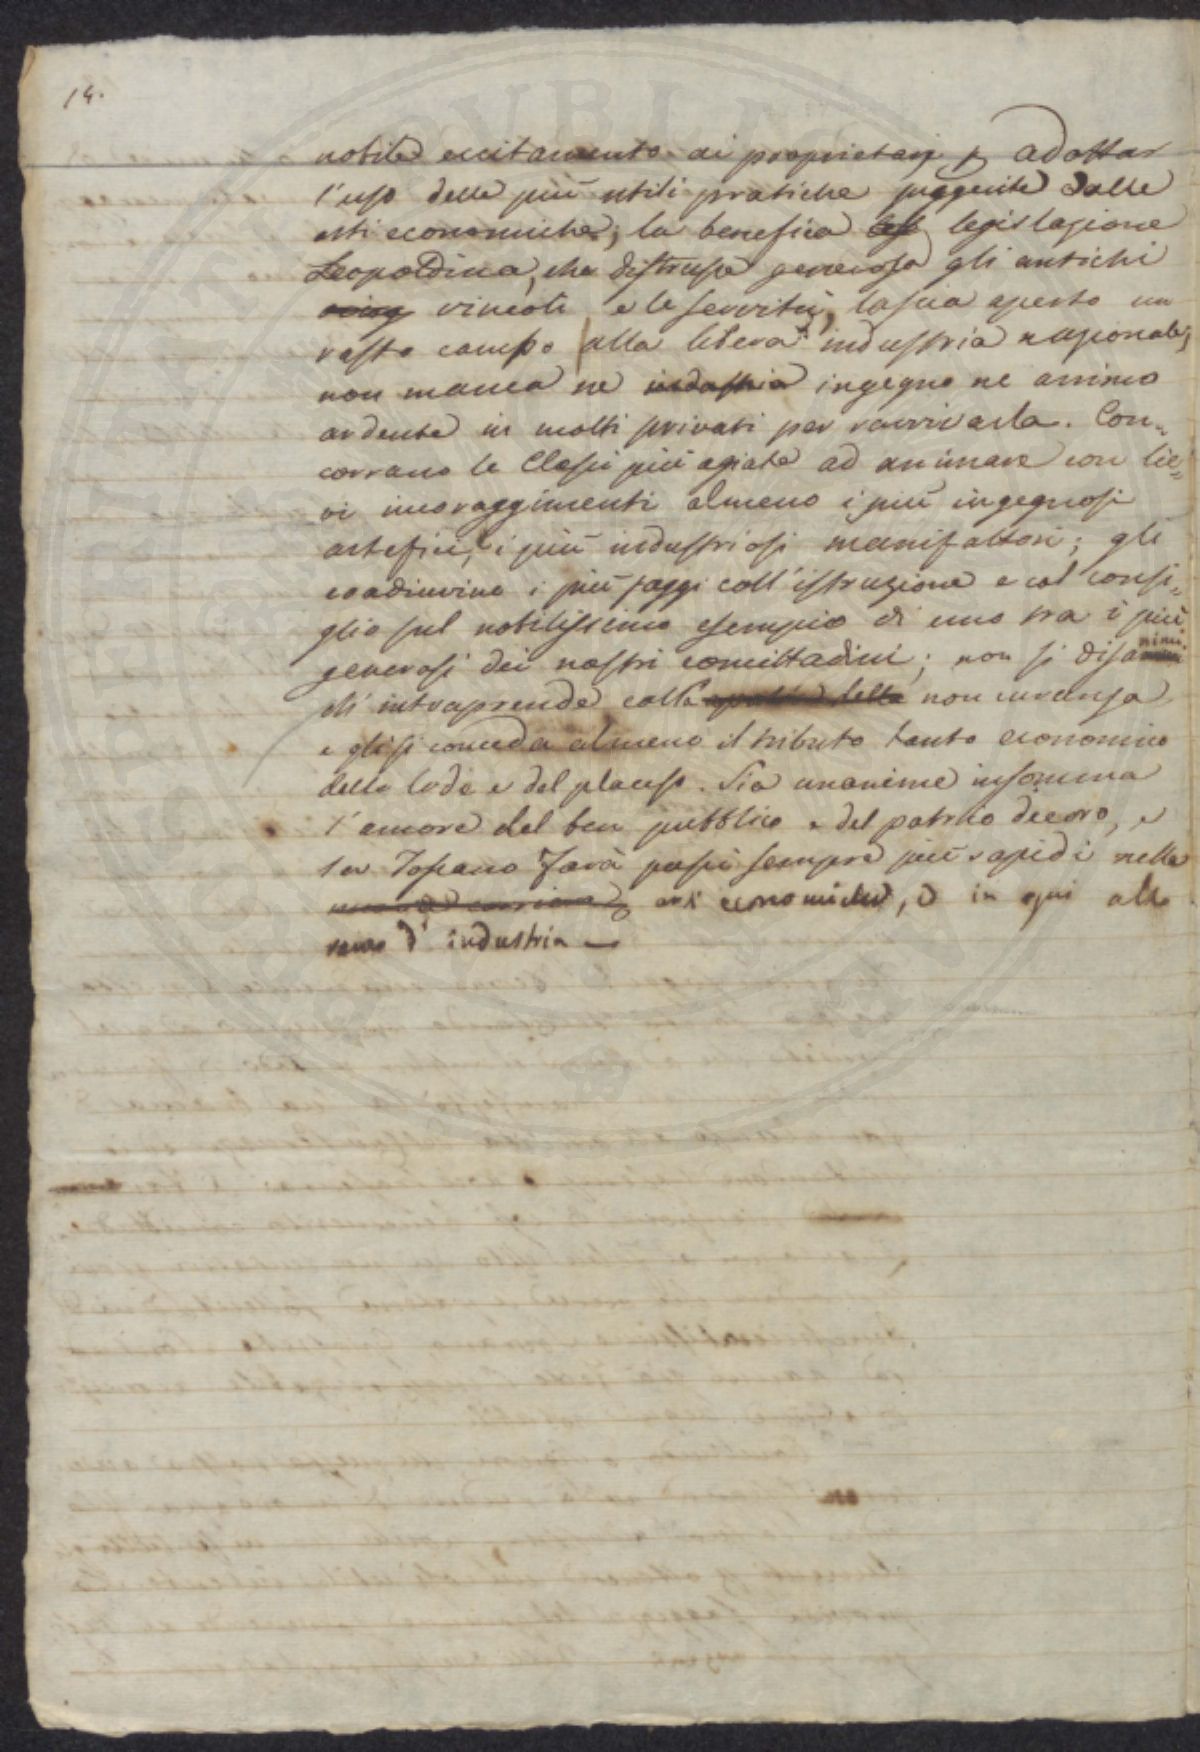 14.
nobile eccitamento ai proprietarj p adottar
l'uso delle più utili pratiche suggerite dalle
arti economiche; la benefica legislazione
Leopoldina, che distrusse generosa gli antichi
vincoli e le servitù, lascia aperto un
vasto campo alla libera industria nazionale;
non manca ne industria ingegno ne animo
ardente in molti privati per ravvivarla. Con=
corrano le Classi più agiate ad animare con lie=
vi incoraggimenti almeno i più ingegnosi
artefici, i più industriosi manifattori; gli
coadiuvino i più saggi coll'istruzione e col consi=
glio sul nobilissimo esempio di uno tra i più
generosi dei nostri concittadini; non si disanimi
chi intraprende colla non curanza
e gli si conceda almeno il tributo tanto economico
della lode e del plauso. Sia unanime insomma
l'amore del ben pubblico e del patrio decoro, e
la Toscana farà passi sempre più rapidi nelle
arti economiche, e in ogni altro
ramo d'industria —